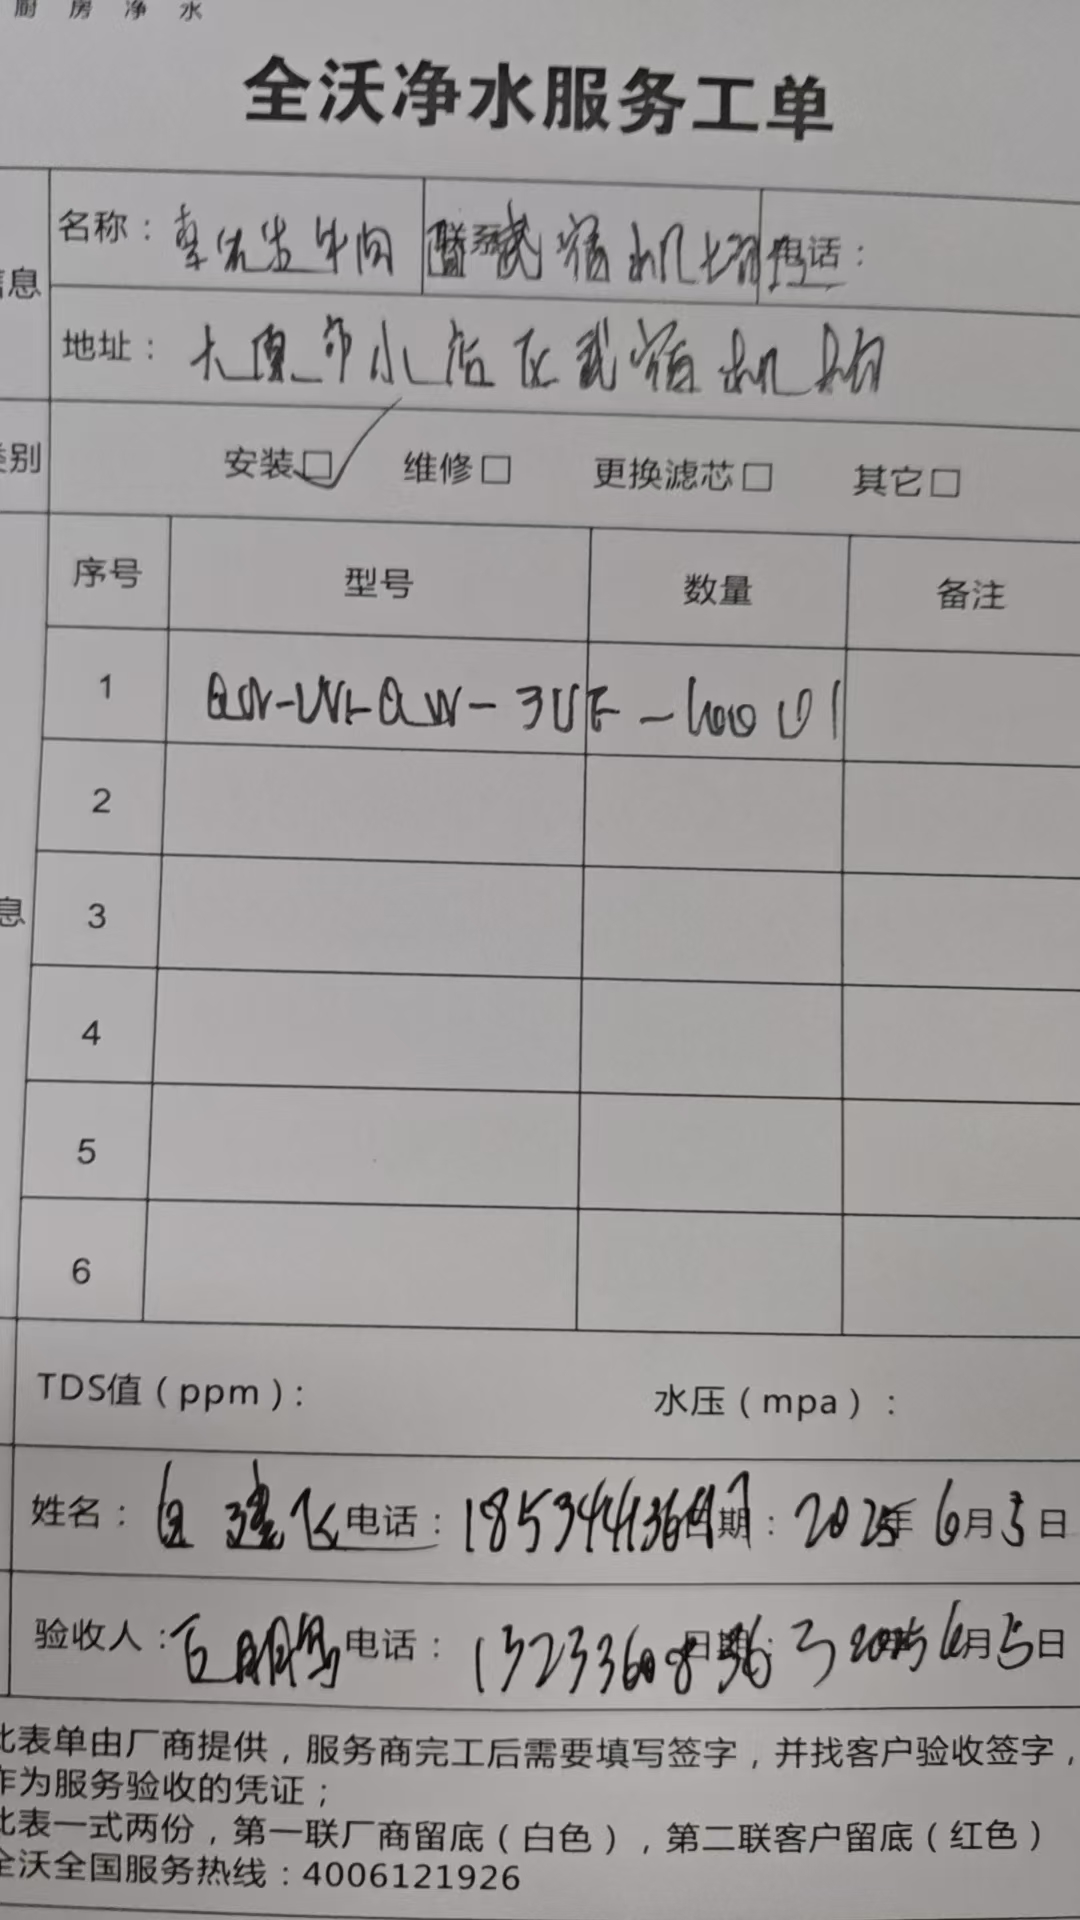 厨房净水
全沃净水服务工单
息 名称：李先生牛肉 武宿机场店 电话：
地址：太原市小店区武宿机场
类别 安装□✓ 维修□ 更换滤芯□ 其它□
序号 型号 数量 备注
1 QW-3UF
2
3
息
4
5
6
TDS值（ppm）： 水压（mpa）：
姓名：白建飞 电话： 日期：2025年6月5日
验收人： 电话： 日期：2025 6月5日
此表单由厂商提供，服务商完工后需要填写签字，并找客户验收签字，
作为服务验收的凭证；
此表一式两份，第一联厂商留底（白色），第二联客户留底（红色）
全沃全国服务热线：4006121926